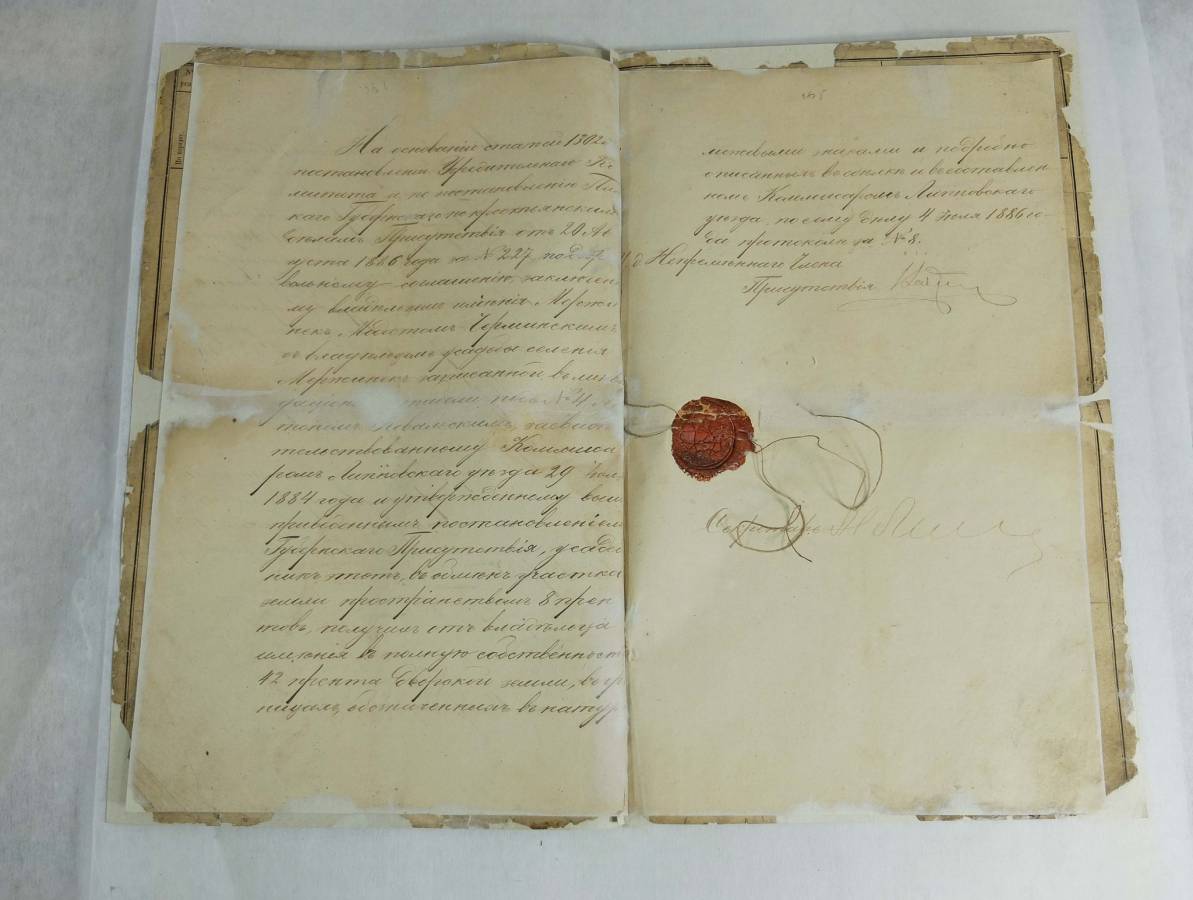 На основаніи статей 1302
постановленія Учредительнаго Ко-
митета и по постановленію Пло-
каго Губернскаго по крестьянскимъ
дѣламъ Присутствія отъ 20 Ав-
густа 1886 года за № 227, по добро-
вольному соглашенію, заключен
му владѣльцемъ имѣнія
съ владѣльцемъ усадьбы селенія
записанной въ лик
подъ № 4
засвидѣ
тельствованному Коммиса
ромъ Липновскаго уѣзда 29
1884 года и утвержденному выше
приведеннымъ постановленіемъ
Губернскаго Присутствія, усадь
никъ этотъ, въ обмѣнъ участка
земли пространствомъ 8 прен
товъ, получилъ отъ владѣльца
имѣнія въ полную собственность
42 прента дворской земли, въ гр
ницахъ, обозначенныхъ въ натур
межевыми знаками и подробно
описанныхъ въ составлен
номъ Коммисаромъ Липновскаго
уѣзда, по сему дѣлу 4 Іюля 1886 го-
да протоколѣ за № 8.
Непремѣннаго Члена
Присутствія
Секретарь